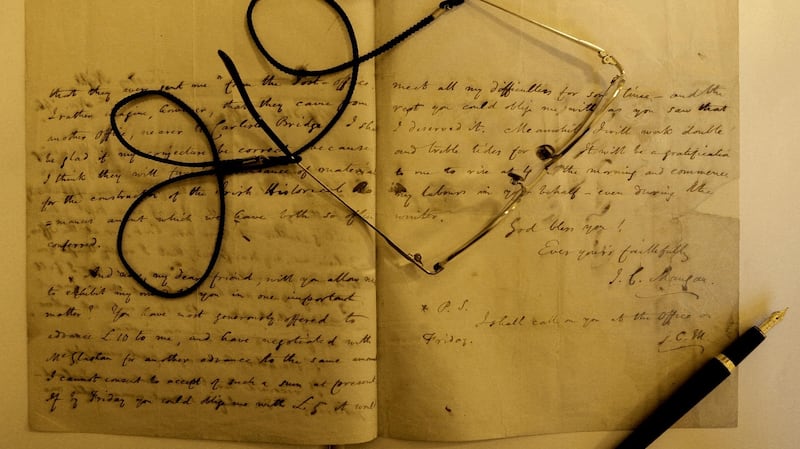 that they ever sent me "from the Post-Office.
I rather fague, however, that they came from
another Office, nearer to Carlisle Bridge. I sha
be glad if my conjecture be correct, because
I think they will of material
for the construction of the Irish Historical
-mances anent which we have both so often
conferred.
And my dear friend, will you allow me
to exhibit my you in one important
matter? You have most generously offered to
advance £10 to me, and have negotiated with
McGlashan for another advance to the same amount
I cannot consent to accept of such a sum at present
If by Friday you could oblige me with £5 it will
meet all my difficulties for some time - and the
rest you could oblige me with as you saw that
I deserved it. Meanwhile I will work double
and treble tides for It will be a gratification
to me to rise at 4 in the morning and commence
my labours in your behalf - even during the
winter.
God bless you!
Ever your's faithfully
J. C. Mangan.
* P. S.
I shall call on you at the Office on
Friday.
J. C. M.